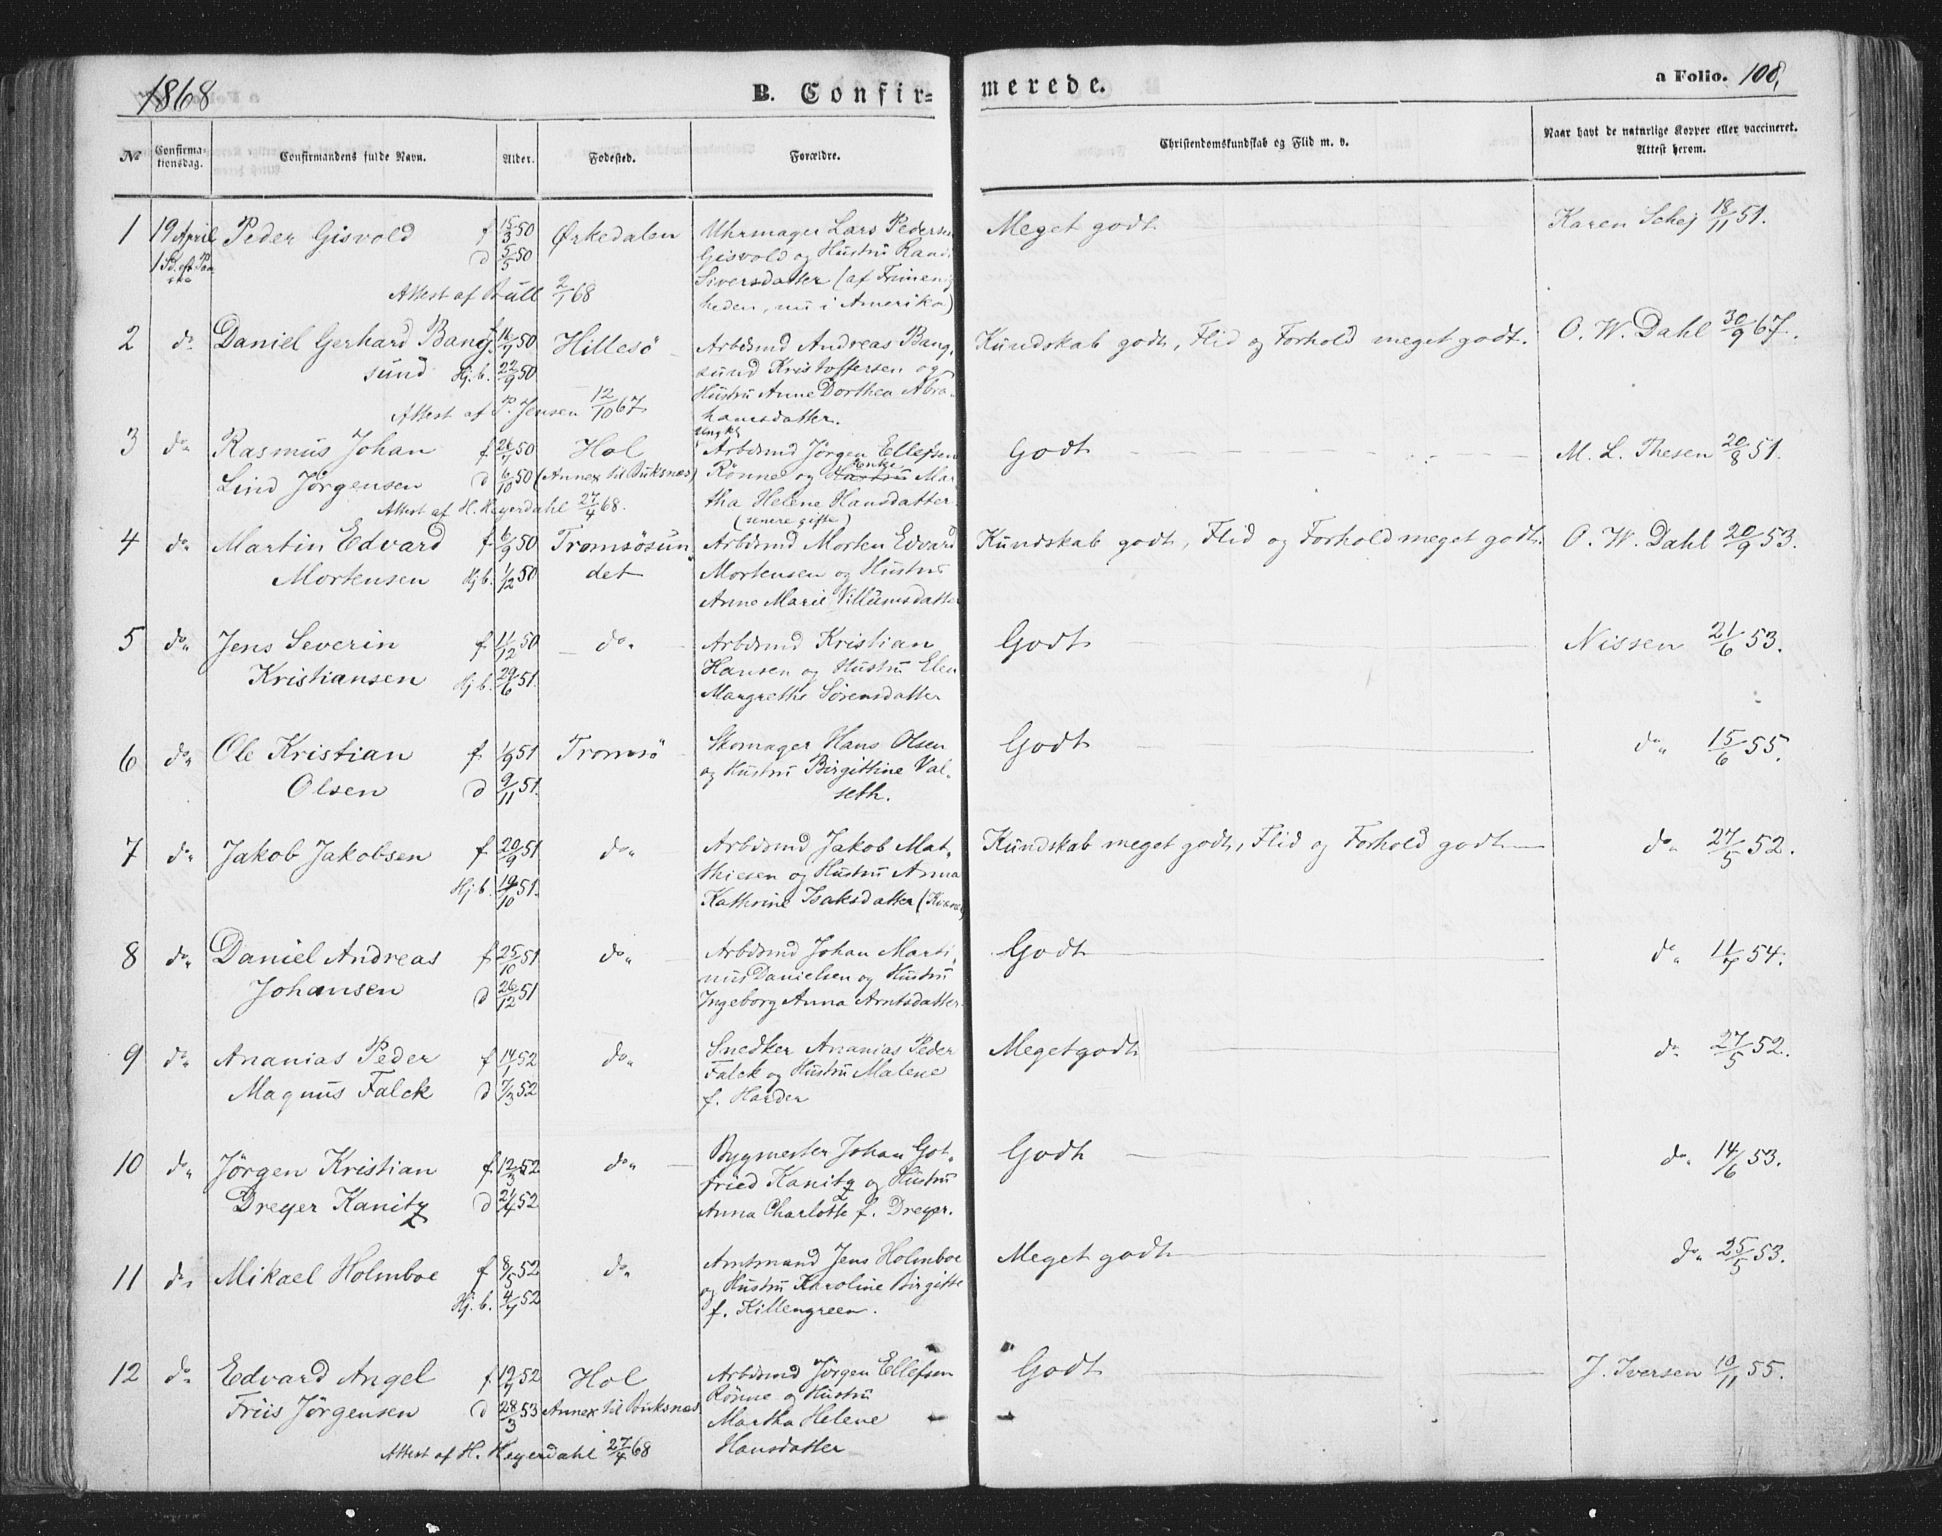 1868 B. Confir= merede. a Folio. 108,
No Confirma-tionsdag. Confirmandens fulde Navn. Alder. Fødested. Forældre. Christendomskundskab og Flid m. v. Naar havt de naturlige Kopper eller vaccineret. Attest herom.
1 19 April Peder Gisvold f 15/3 50 Ørkedalen Uhrmager Lars Pedersen Meget godt Karen Schej 18/11 51.
d 5/5 50 Gisvold og Hustru Randi
Siversdatter (af
Attest af Bull 2/1 68 heden, nu i Amerika)
2 do Daniel Gerhard Bang- 50 Hillesö Arbdsmd Andreas Bang- Kundskab godt, Flid og Forhold meget godt. O. W. Dahl 30/9 67.
sund Hj.b. 22/9 50 sund Kristoffersen og
Attest af P. Jensen 12/10 67 Hustru Anne Dorthea Abra-
hamsdatter.
3 do Rasmus Johan f 50 Hol Ungk. Arbdsmd Jörgen Ellefsen Godt M. L. Thesen 20/8 51.
Lind Jörgensen d 6/10 50 (Annex til Buksnæs) Rönne og Hustru Mar-
Attest af H. Heyerdahl 27/4 68. tha Helene Hansdatter
(senere gifte)
4 do Martin Edvard f 6/9 50 Tromsösun- Arbdsmd Morten Edvard Kundskab godt, Flid og Forhold meget godt. O. W. Dahl 20/9 53.
Mortensen Hj.b. 1/12 50 det Mortensen og Hustru
Anne Marie Villumsdatter
5 do Jens Severin f 11/12 50 do Arbdsmd Kristian Godt Nissen 21/6 53.
Kristiansen Hj.b. 29/6 51. Hansen og Hustru Elen
Margrethe Sörensdatter
6 do Ole Kristian f 1/9 51 Tromsö Skomager Hans Olsen Godt do 15/6 55.
Olsen d 9/11 51. og Hustru Birgittine Val-
seth.
7 do Jakob Jakobsen f 20/9 51 do Arbdsmd Jakob Mat- Kundskab meget godt, Flid og Forhold godt do 27/5 52.
Hj.b. 19/10 51. thiesen og Hustru Anna
Kathrine Isaksdatter
8 do Daniel Andreas f 25/10 51 do Arbdsmd Johan Marti- Godt do 54.
Johansen d 26/12 51 nus Danielsen og Hustru
Ingeborg Anna Arntsdatter
9 do Ananias Peder f 14/1 52 do Snedker Ananias Peder Meget godt do 27/5 52.
Magnus Falck d 7/3 52 Falck og Hustru Malene
f. Harder
10 do Jörgen Kristian f 12/3 52 do Bygmester Johan Got- Godt do 14/6 53.
Dreyer Kanitz d 52 fried Kanitz og Hustru
Anna Charlotte f. Dreyer.
11 do Mikael Holmboe f 8/5 52 do Amtmand Jens Holmboe Meget godt do 25/5 53.
Hj.b. 52 og Hustru Karoline Birgitte
f. Killengreen.
12 do Edvard Angel f 52 Hol Arbdsmd Jörgen Ellefsen Godt J. Iversen 10/11 55.
Friis Jörgensen d 28/3 53 Annex til Buksnæs Rönne og Hustru
Martha Helene
Attest af H. Heyerdahl 27/4 68 Hansdatter